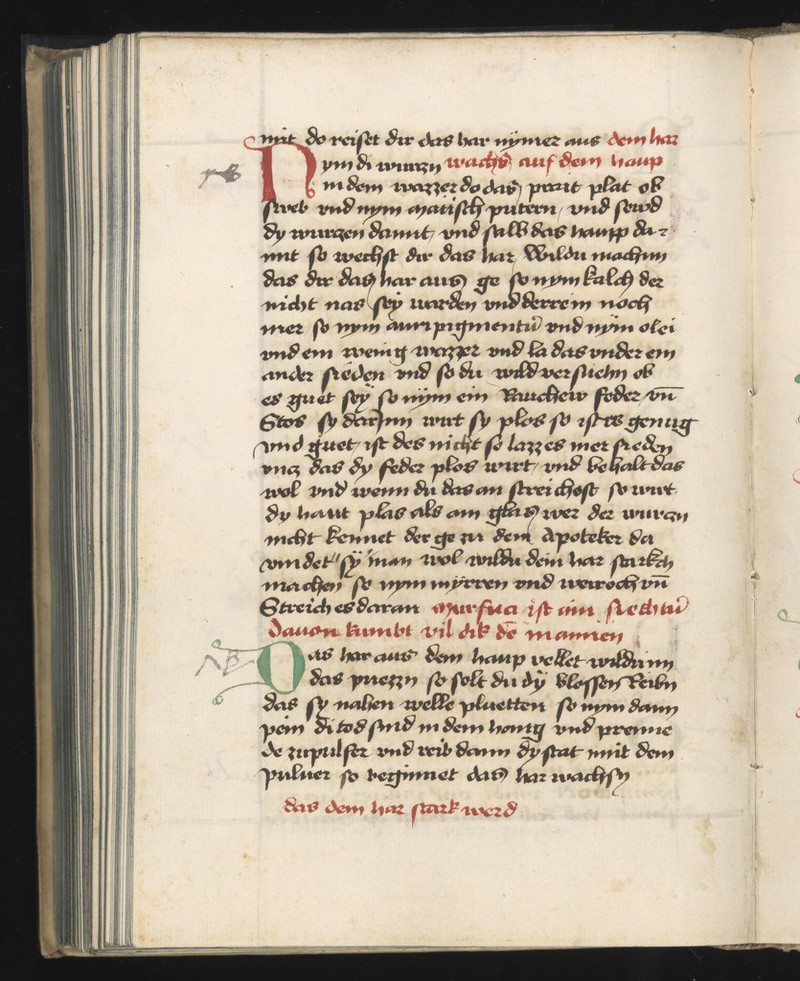 mit do reiset dir das har nymer aus dem har
Nym di wurczn wachs auf dem haup
in dem wazzer do das prait plat ob
sweb vnd nym putern vnd sewd
dy wurczen damit vnd salb das haupp da
mit so wechst dir das har Wildu machnn
das dir das har aus ge so nym kalch der
nicht nas sey warden vnd derrem noch
mer so nym auripigmentū vnd nym olei
vnd ein wenig wazzer vnd la das vnder ein
ander sieden vnd so du wild versuehn ob
es guet sey so nym ein Rauchew feder vn̄
Stos sy darjnn wirt sy plos so ist es genug
vnd guet ist des nicht so lazz es mer sieden
vncz das dy feder plos wirt vnd behalt das
wol vnd wenn du das an streichest so wirt
dy haut plas als ain glas wer der wurczn
nicht kennet der ge zu dem Apoteker da
vindet sy man wol wildu dein har starkch
machen so nym myrren vnd weiroch vn̄
Streich es daran ist ain siechtū
Dauon kumbt vil dik dē mannen
Das har aus dem haup vellet wildu im
das puezzn so solt du dy blossen Reibn
das sy nahen welle pluetten so nym dann
pein di tod sind in dem honig vnd prenne
de zu pulfer vnd reib dann dy stat mit dem
puluer so beginnet das har wachsn
das dem har stark werd